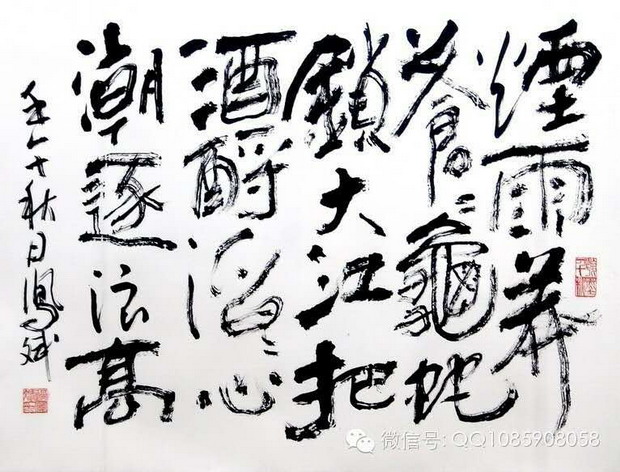 煙雨莽
蒼〻龜蛇
鎖大江把
酒酹滔〻心
潮逐浪高
秋日
微信号: QQ1085908058